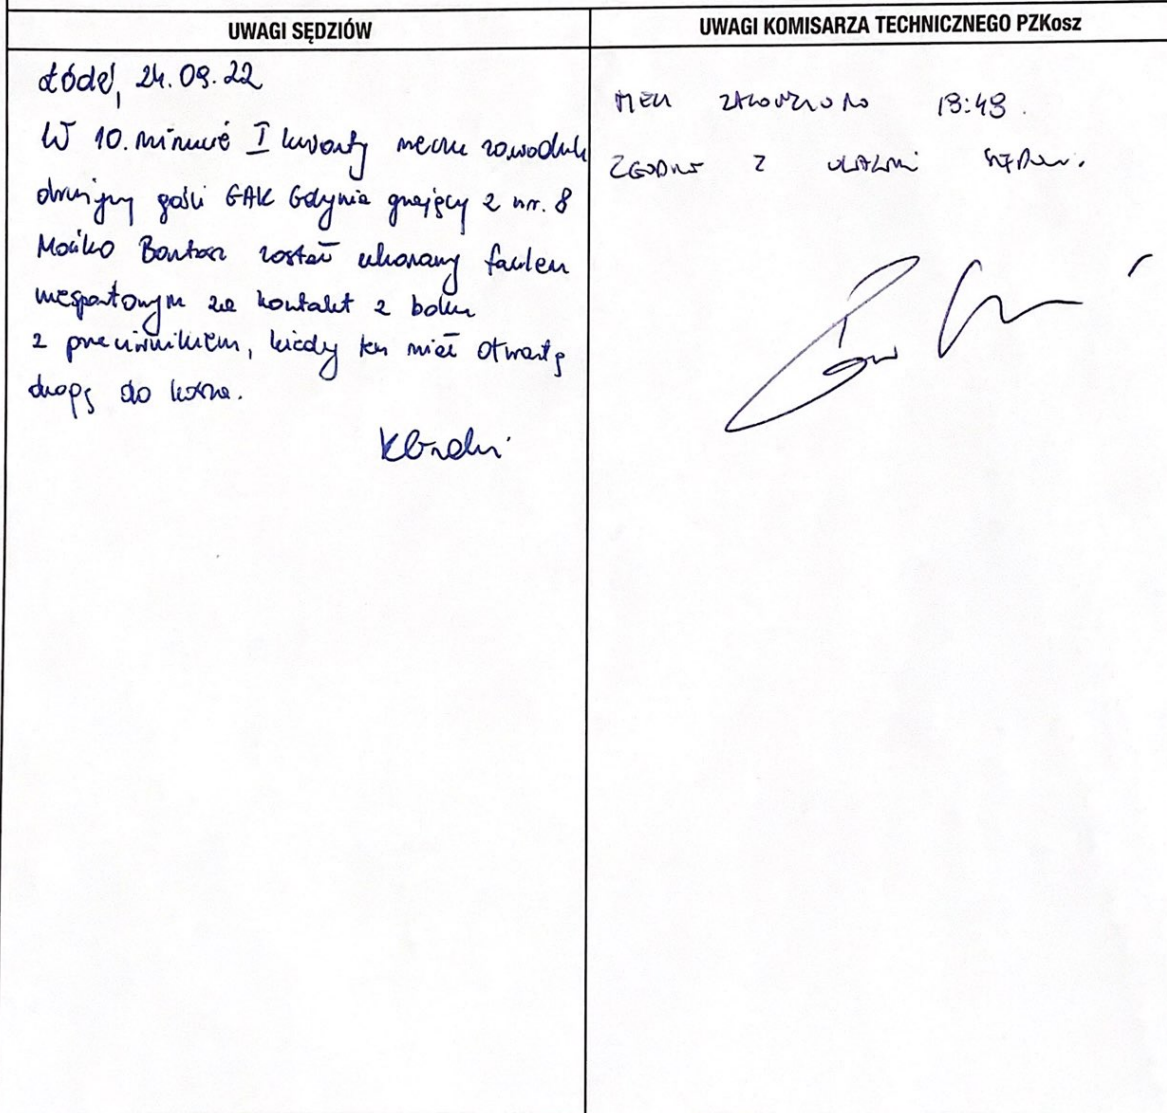 UWAGI SĘDZIÓW
Łódź, 24.09.22
W 10. minucie I kwarty meczu zawodnik
drużyny gości GAK Gdynia grający z nr. 8
został ukarany faulem
niesportowym za kontakt z boku
z przeciwnikiem, kiedy ten miał otwartą
drogę do kosza.
UWAGI KOMISARZA TECHNICZNEGO PZKosz
MECZ ZAKOŃCZONO
ZGODNIE Z UWAGAMI SĘDZIÓW.